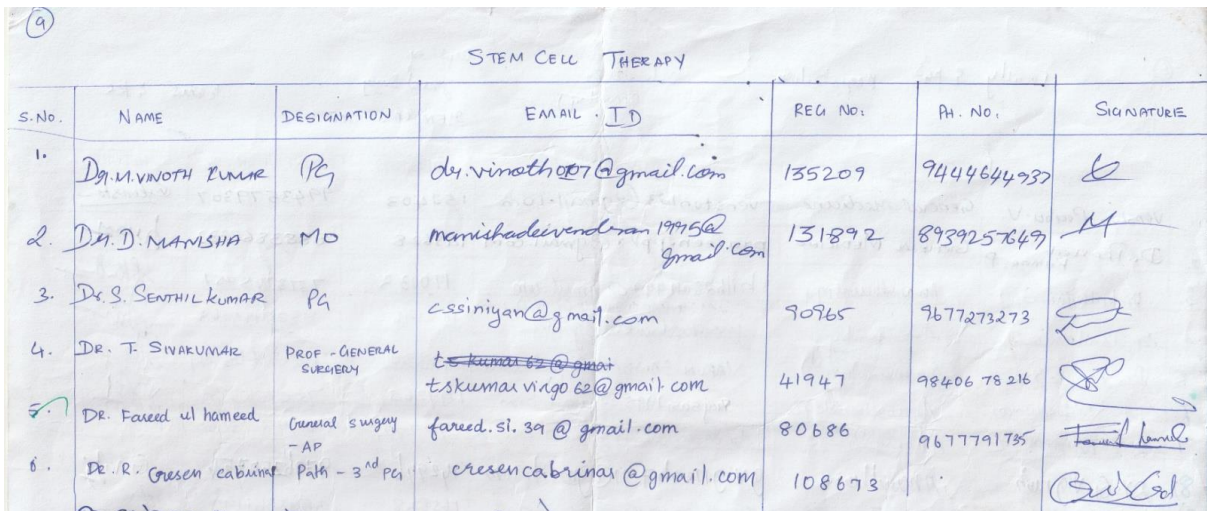 9
STEM CELL THERAPY
S.No. NAME DESIGNATION EMAIL. ID REG NO: PH. NO. SIGNATURE
1. Dr.M.VINOTH KUMAR PG dr.vinoth007@gmail.com 135209 9444644937
2. Dr. D. MANISHA MO manishadeivendiran1995@ 131892 8939257649
gmail.com
3. Dr. S. SENTHIL KUMAR PG cssiniyan@gmail.com 90965 9677273273
4. DR. T. SIVAKUMAR PROF - GENERAL ts kumar 62 @ gmai
SURGERY tskumarvirgo62@gmail.com 41947 98406 78216
5. DR. Fareed ul hameed General surgery fareed.si.39@gmail.com 80686 9677791735
- AP
6. DR. R. Cresen cabrinar Path - 3rd PG cresencabrinar@gmail.com 108673